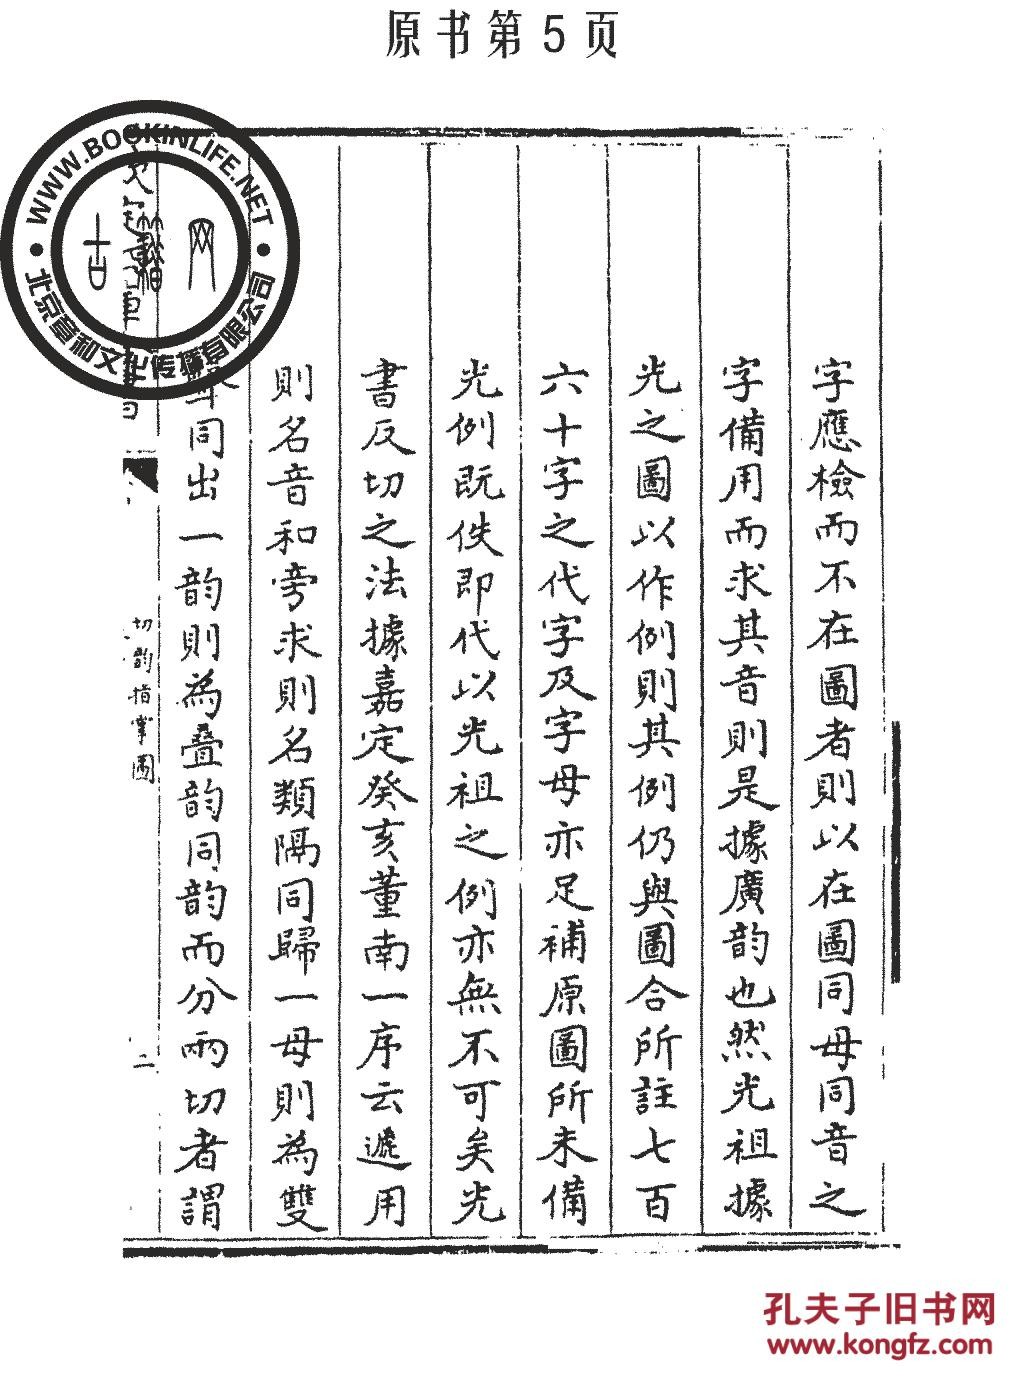 原书第5页
字應檢而不在圖者則以在圖同母同音之
字備用而求其音則是據廣韵也然光祖據
光之圖以作例則其例仍與圖合所註七百
六十字之代字及字母亦足補原圖所未備
光例既佚即代以光祖之例亦無不可矣光
書反切之法據嘉定癸亥董南一序云遞用
則名音和旁求則名類隔同歸一母則為雙
聲同出一韵則為叠韵同韵而分兩切者謂
切韵指掌圖
二
WWW.BOOKINLIFE.NET
古籍网
北京章和文化传播有限公司
孔夫子旧书网
www.kongfz.com